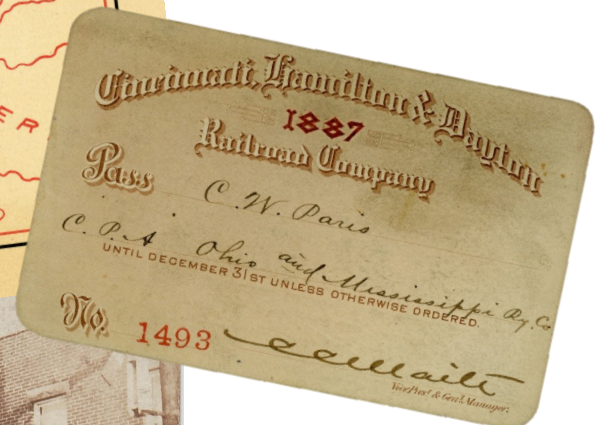 Cincinnati, Hamilton & Dayton
1887
Railroad Company
Pass C. W. Paris
C. P. A Ohio and Mississippi Ry. Co
UNTIL DECEMBER 31ST UNLESS OTHERWISE ORDERED.
No. 1493
Vice Prest. & Genl. Manager.
ER